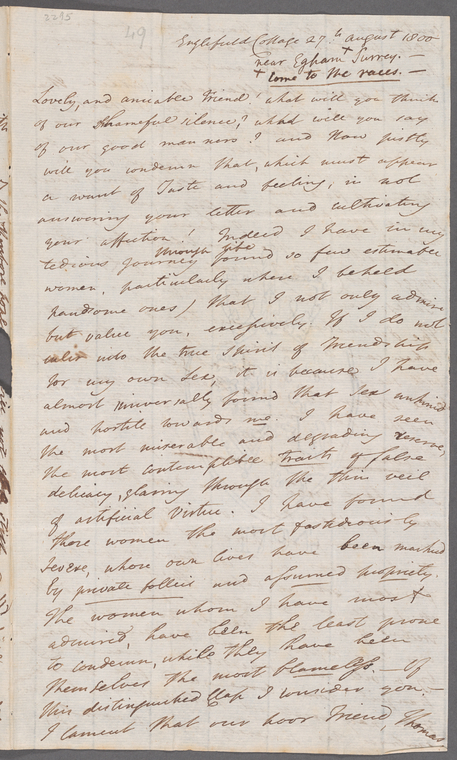 2295
49
Englefield Cottage 27th August 1800
near Egham Surrey. —
+ come to the races. —
Lovely, and amiable Friend! what will you think
of our shameful silence? what will you say
of our good manners? and How justly
will you condemn that, which must appear
a want of Taste and feeling, in not
answering your letter and cultivating
your affection! Indeed I have in my
through life
tedious Journey found so few estimable
women, particularly where I beheld
handsome ones, that I not only admire
but value you, excessively. If I do not
enter into the true Spirit of Friendship
for my own Sex, it is because I have
almost universally found that Sex unkind
and hostile towards me. I have seen
the most miserable and degrading reserve,
the most contemptible traits of false
delicacy, glaring through the thin veil
of artificial virtue. I have found
those women the most fastidiously
severe, whose own lives have been marked
by private follies and assumed propriety.
The women whom I have most
admired, have been the least prone
to condemn, while they have been
themselves the most blameless. — Of
this distinguished Class I consider you. —
I lament that our poor Friend, Thomas